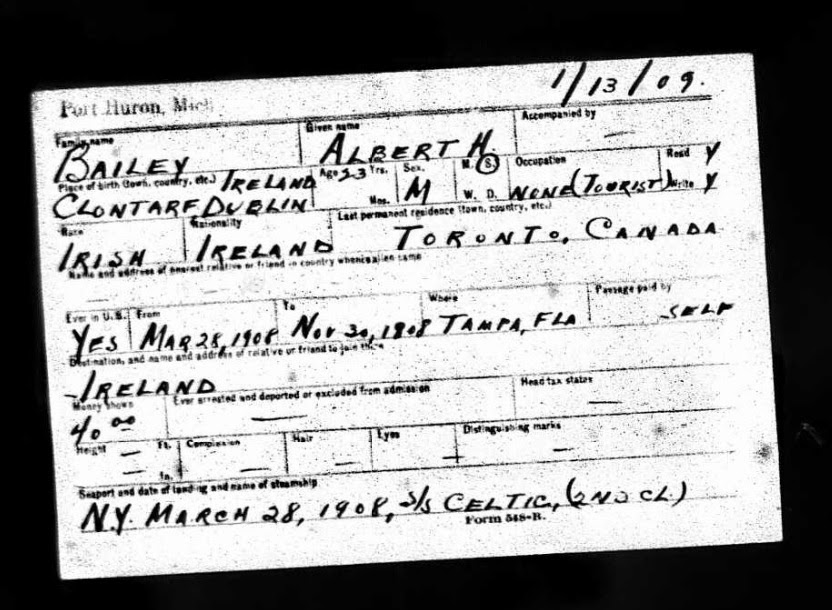 1/13/09.
Port Huron, Mich
Family name Given name Accompanied by
BAILEY ALBERT H. —
Place of birth (town, country, etc.) IRELAND Age 23 Yrs. Sex. M. S. Occupation Read Y
CLONTARF, DUBLIN Mos. M W. D. NONE (TOURIST) Write Y
Race Nationality Last permanent residence (town, country, etc.)
IRISH IRELAND TORONTO, CANADA
Name and address of nearest relative or friend in country whence alien came
—
Ever in U.S. From To Where Passage paid by
YES MAR 28, 1908 NOV 30, 1908 TAMPA, FLA SELF
Destination, and name and address of relative or friend to join there
IRELAND
Money shown Ever arrested and deported or excluded from admission Head tax status
40 00 — —
Height — Ft. Complexion Hair Eyes Distinguishing marks
— In. — — — —
Seaport and date of landing and name of steamship
N.Y. MARCH 28, 1908, S/S CELTIC, (2ND CL.)
Form 548-B.